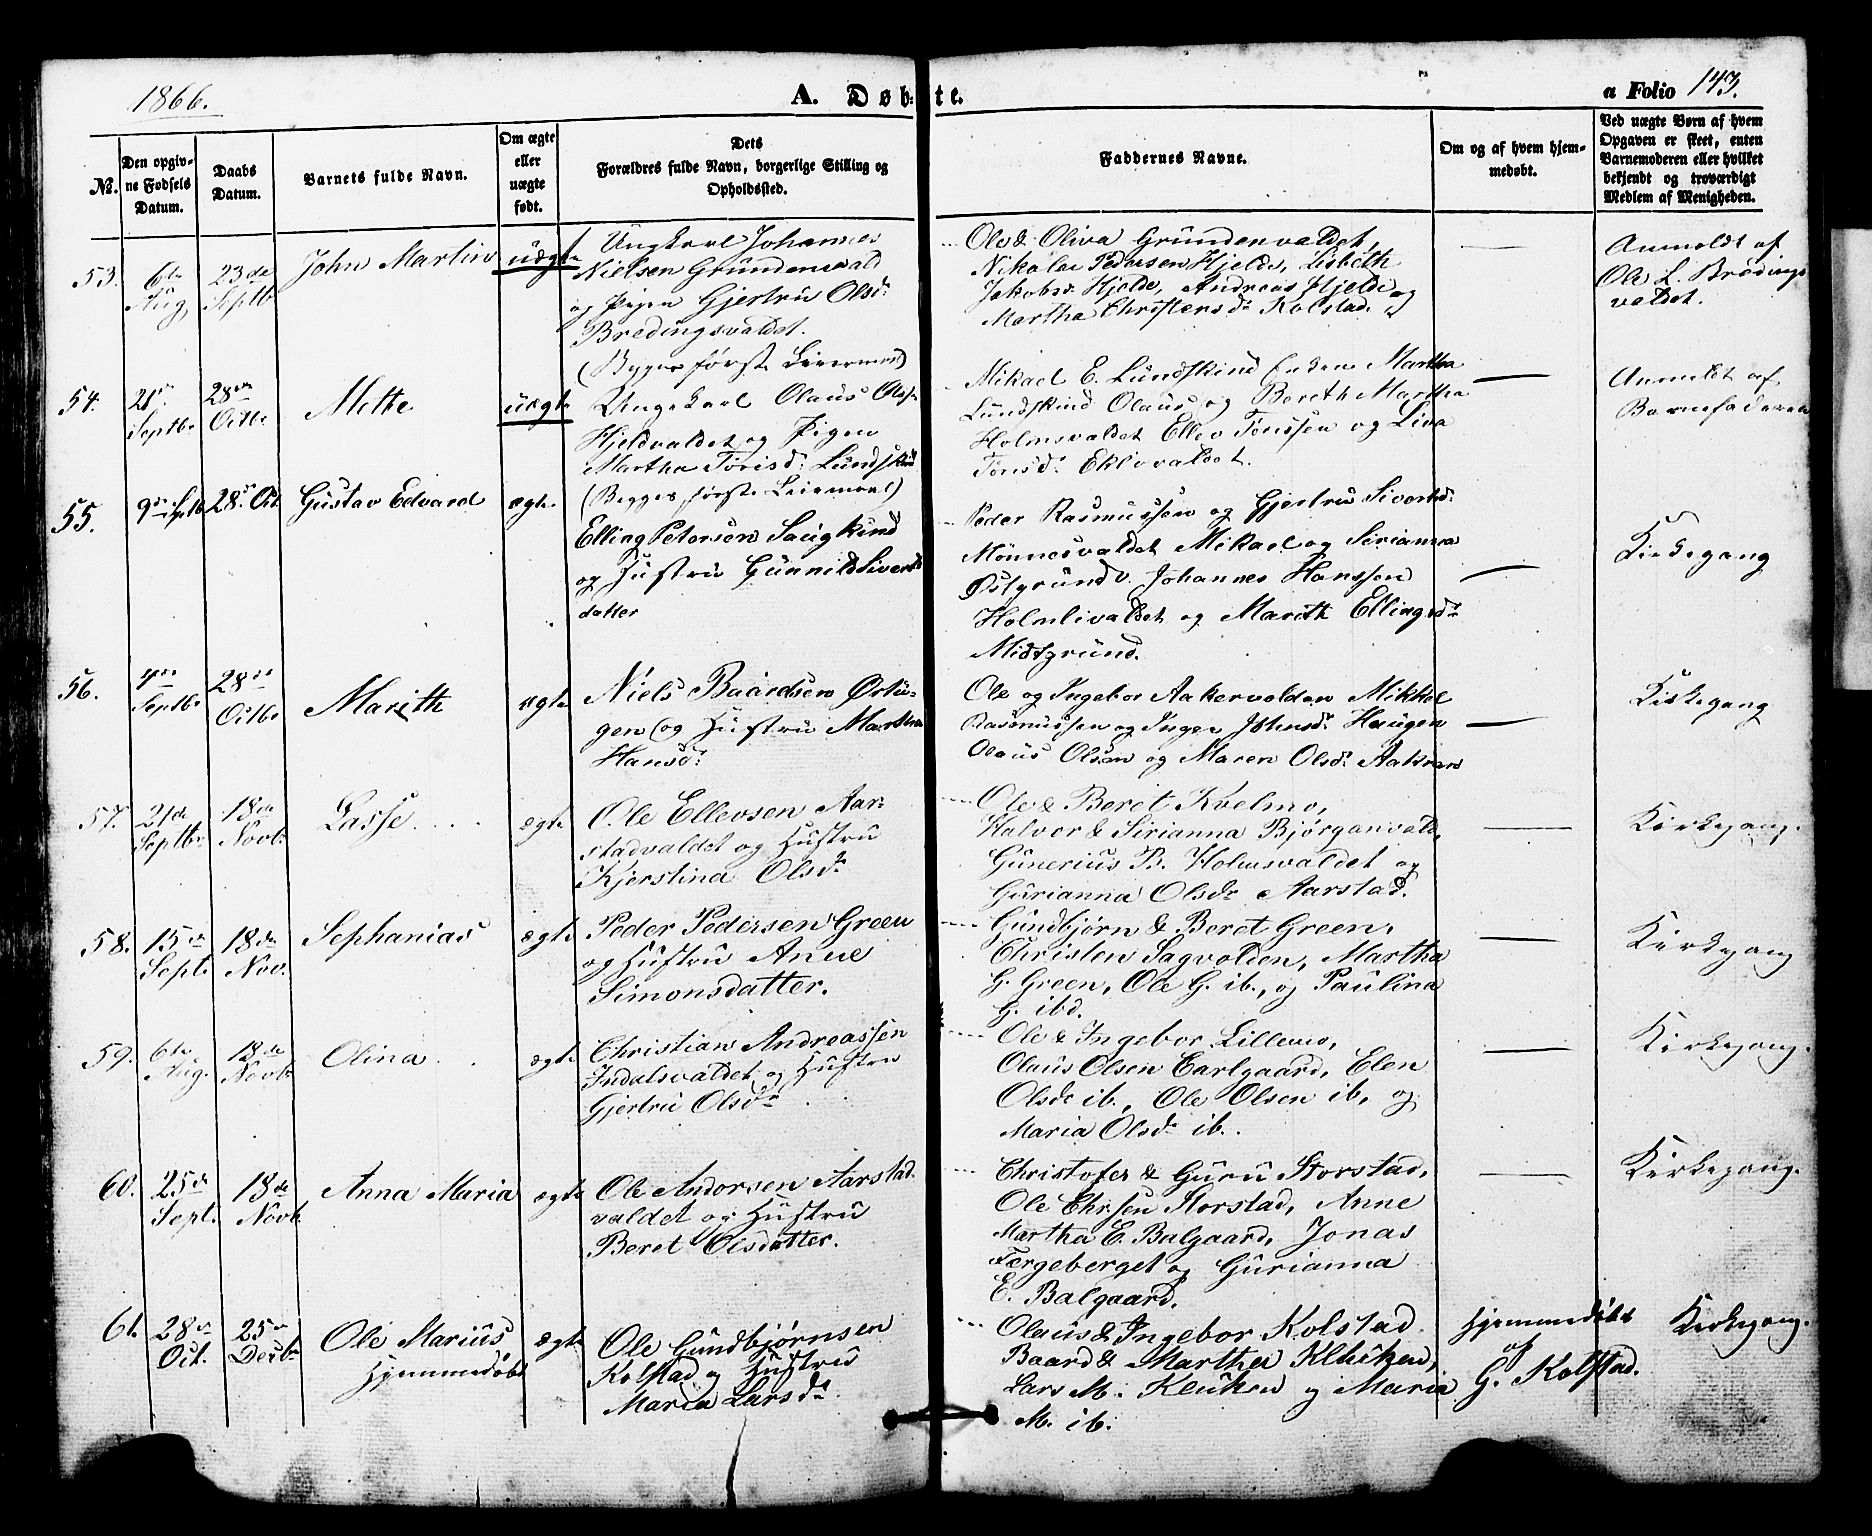 1866.
A. Døbte.
a Folio 143.
No.
Den opgivne Fødsels Datum.
Daabs Datum.
Barnets fulde Navn.
Om ægte eller uægte født.
Dets Forældres fulde Navn, borgerlige Stilling og Opholdssted.
Faddernes Navne.
Om og af hvem hjemmedøbt.
Ved uægte Børn af hvem Opgaven er skeet, enten Barnemoderen eller hvilket bekjendt og troværdigt Medlem af Menigheden.
53. 6te Aug 23de Septb. John Martin uægte
Ungkarl Johannes
Nielsen Grundenvald
og Pigen Gjertru Olsd.
Bredingsvaldet.
(Begges første Leiermaal)
Ole & Oliva Grundenvaldet,
Nikolai Pedersen Hjelde, Lisbeth
Jakobsd. Hjelde, Andreas Hjelde og
Martha Christensd. Kolstad.
Anmeldt af
Ole L. Bredings
valdet.
54. 21de Septb. 28de Octb. Mette uægte
Ungekarl Olaus Olss.
Hjeldvaldet og Pigen
Martha Torisd. Lundskin
(Begges første Leiermaal)
Mikael E. Lundskind Martha
Lundskind Olaus og Bereth Martha
Holmsvaldet Ellev Tørissen og Liva
Eklovaldet.
Anmeldt af
Barnefaderen
55. 9de Septb. 28de Oct. Gustav Edvard ægte
Elling Petersen Saugkind
og Hustru Gunnild Siverts
datter
Peder Rasmussen og Gjertru Sivertsd.
Mønnesvaldet Mikael og Sirianna
Østgrund. Johannes Hanssen
Holmlivaldet og Marith Ellingsd.
Midtgrund.
Kirkegang
56. Septb. 28de Octb. Marith ægte
Niels Baardsen Ørtu-
gen og Hustru Martha
Hansd.
Ole og Ingebor Aakervolden Mikkel
Rasmussen og Inger Johnsd. Haugen
Olaus Olsen og Maren Olsd. Aakran
Kirkegang
57. 21de Septb. 18de Novb. Lasse ægte
Ole Ellevsen Aar-
stadvaldet og Hustru
Kjerstina Olsdr
Ole & Beret Kvelmo,
Halvor & Sirianna Bjørganvald,
Gunerius B. Holmsvaldet og
Gurianna Olsdr Aarstad.
Kirkegang.
58. 15de Sept. 18de Nov. Sephanias ægte
Peder Pedersen Green
og Hustru Anne
Simonsdatter.
Gundbjørn & Beret Green,
Christen Sagvolden, Martha
G. Green, Ole G. ib., og Paulina
G. ibd.
Kirkegang
59. 6te Aug. 18de Novb. Olina ægte
Christian Andreassen
Indalsvaldet og Hustru
Gjertru Olsdr
Ole & Ingebor Lillemo,
Olaus Olsen Carlgaard, Elen
Olsdr ib., Ole Olsen ib. og
Maria Olsdr ib.
Kirkegang.
60. 25de Sept. 18de Novb. Anna Maria ægte
Ole Andorsen Aarstad.
valdet og Hustru
Beret Olsdatter.
Christofer & Guru Storstad,
Ole Chrsen Storstad, Anne
Martha E. Balgaard, Jonas
Færgeberget og Gurianna
E. Balgaard.
Kirkegang.
61. 28de Oct. 25de Decbr Ole Marius ægte
Hjemmedøbt
Ole Gundbjørnsen
Kolstad og Hustru
Maria Larsdr
Olaus & Ingebor Kolstad
Baard & Martha Kluken,
Lars M. Kluken og Maria
M. ib.
Hjemmedøbt
af
G. Kolstad.
Kirkegang.